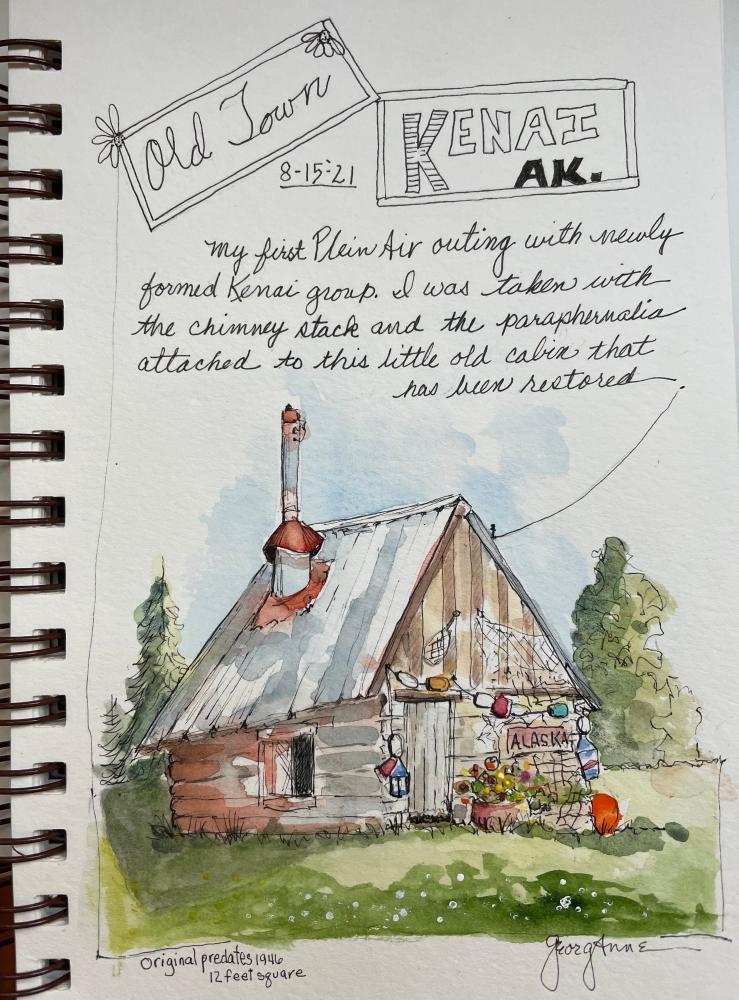 Old Town
KENAI
AK.
8-15-21
My first Plein Air outing with newly
formed Kenai group. I was taken with
the chimney stack and the paraphernalia
attached to this little old cabin that
has been restored.
ALASKA
Original predates 1946
12 feet square
GeorgAnne